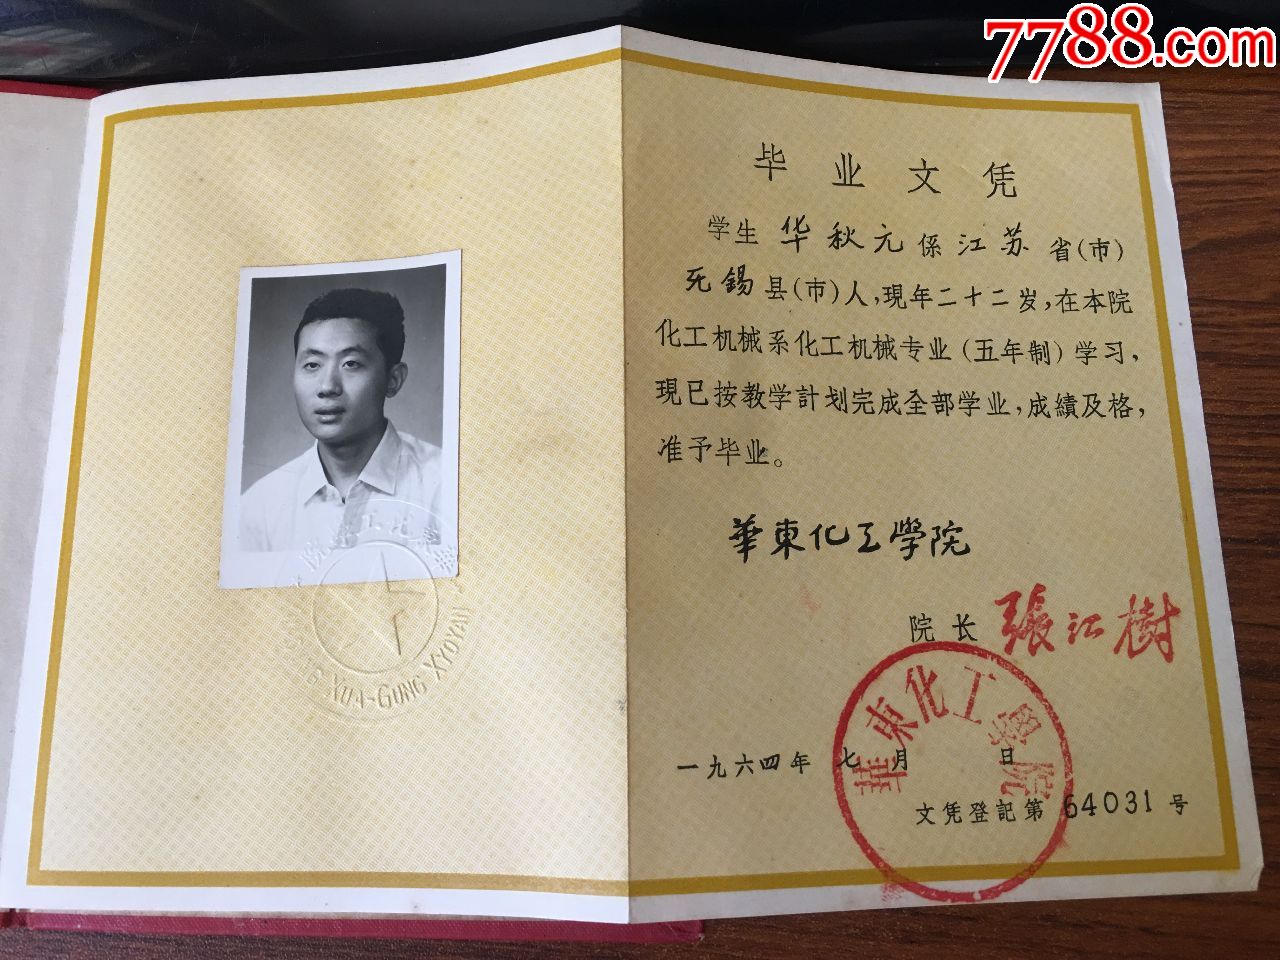 7788.com
毕业文凭
学生 华秋元 係 江苏 省(市)
无锡 县(市)人,現年二十二岁,在本院
化工机械系化工机械专业(五年制)学习,
現已按教学計划完成全部学业,成績及格,
准予毕业。
華東化工學院
院长 張江樹
華東化工學院
一九六四年 七 月 日
文凭登記第 64031 号
XUA-GUNG XYOYAN